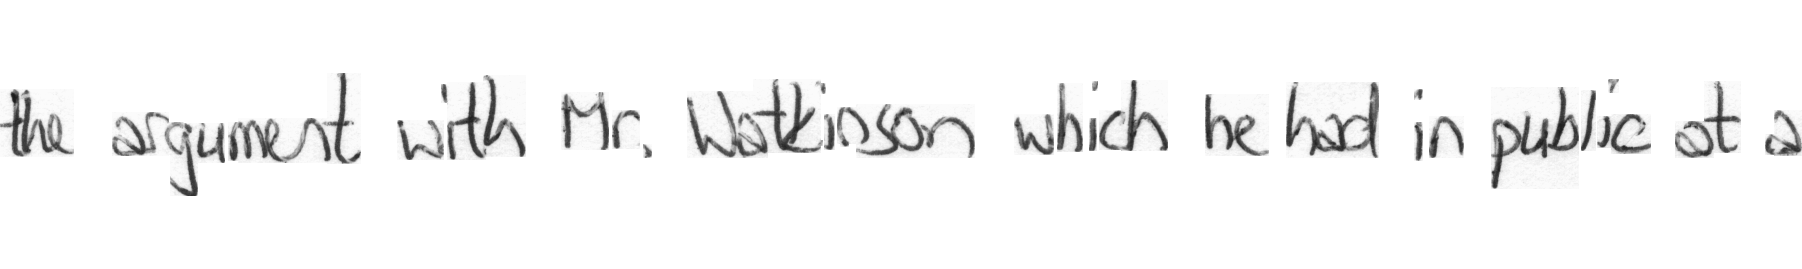 the argument with Mr. Watkinson which he had in public at a